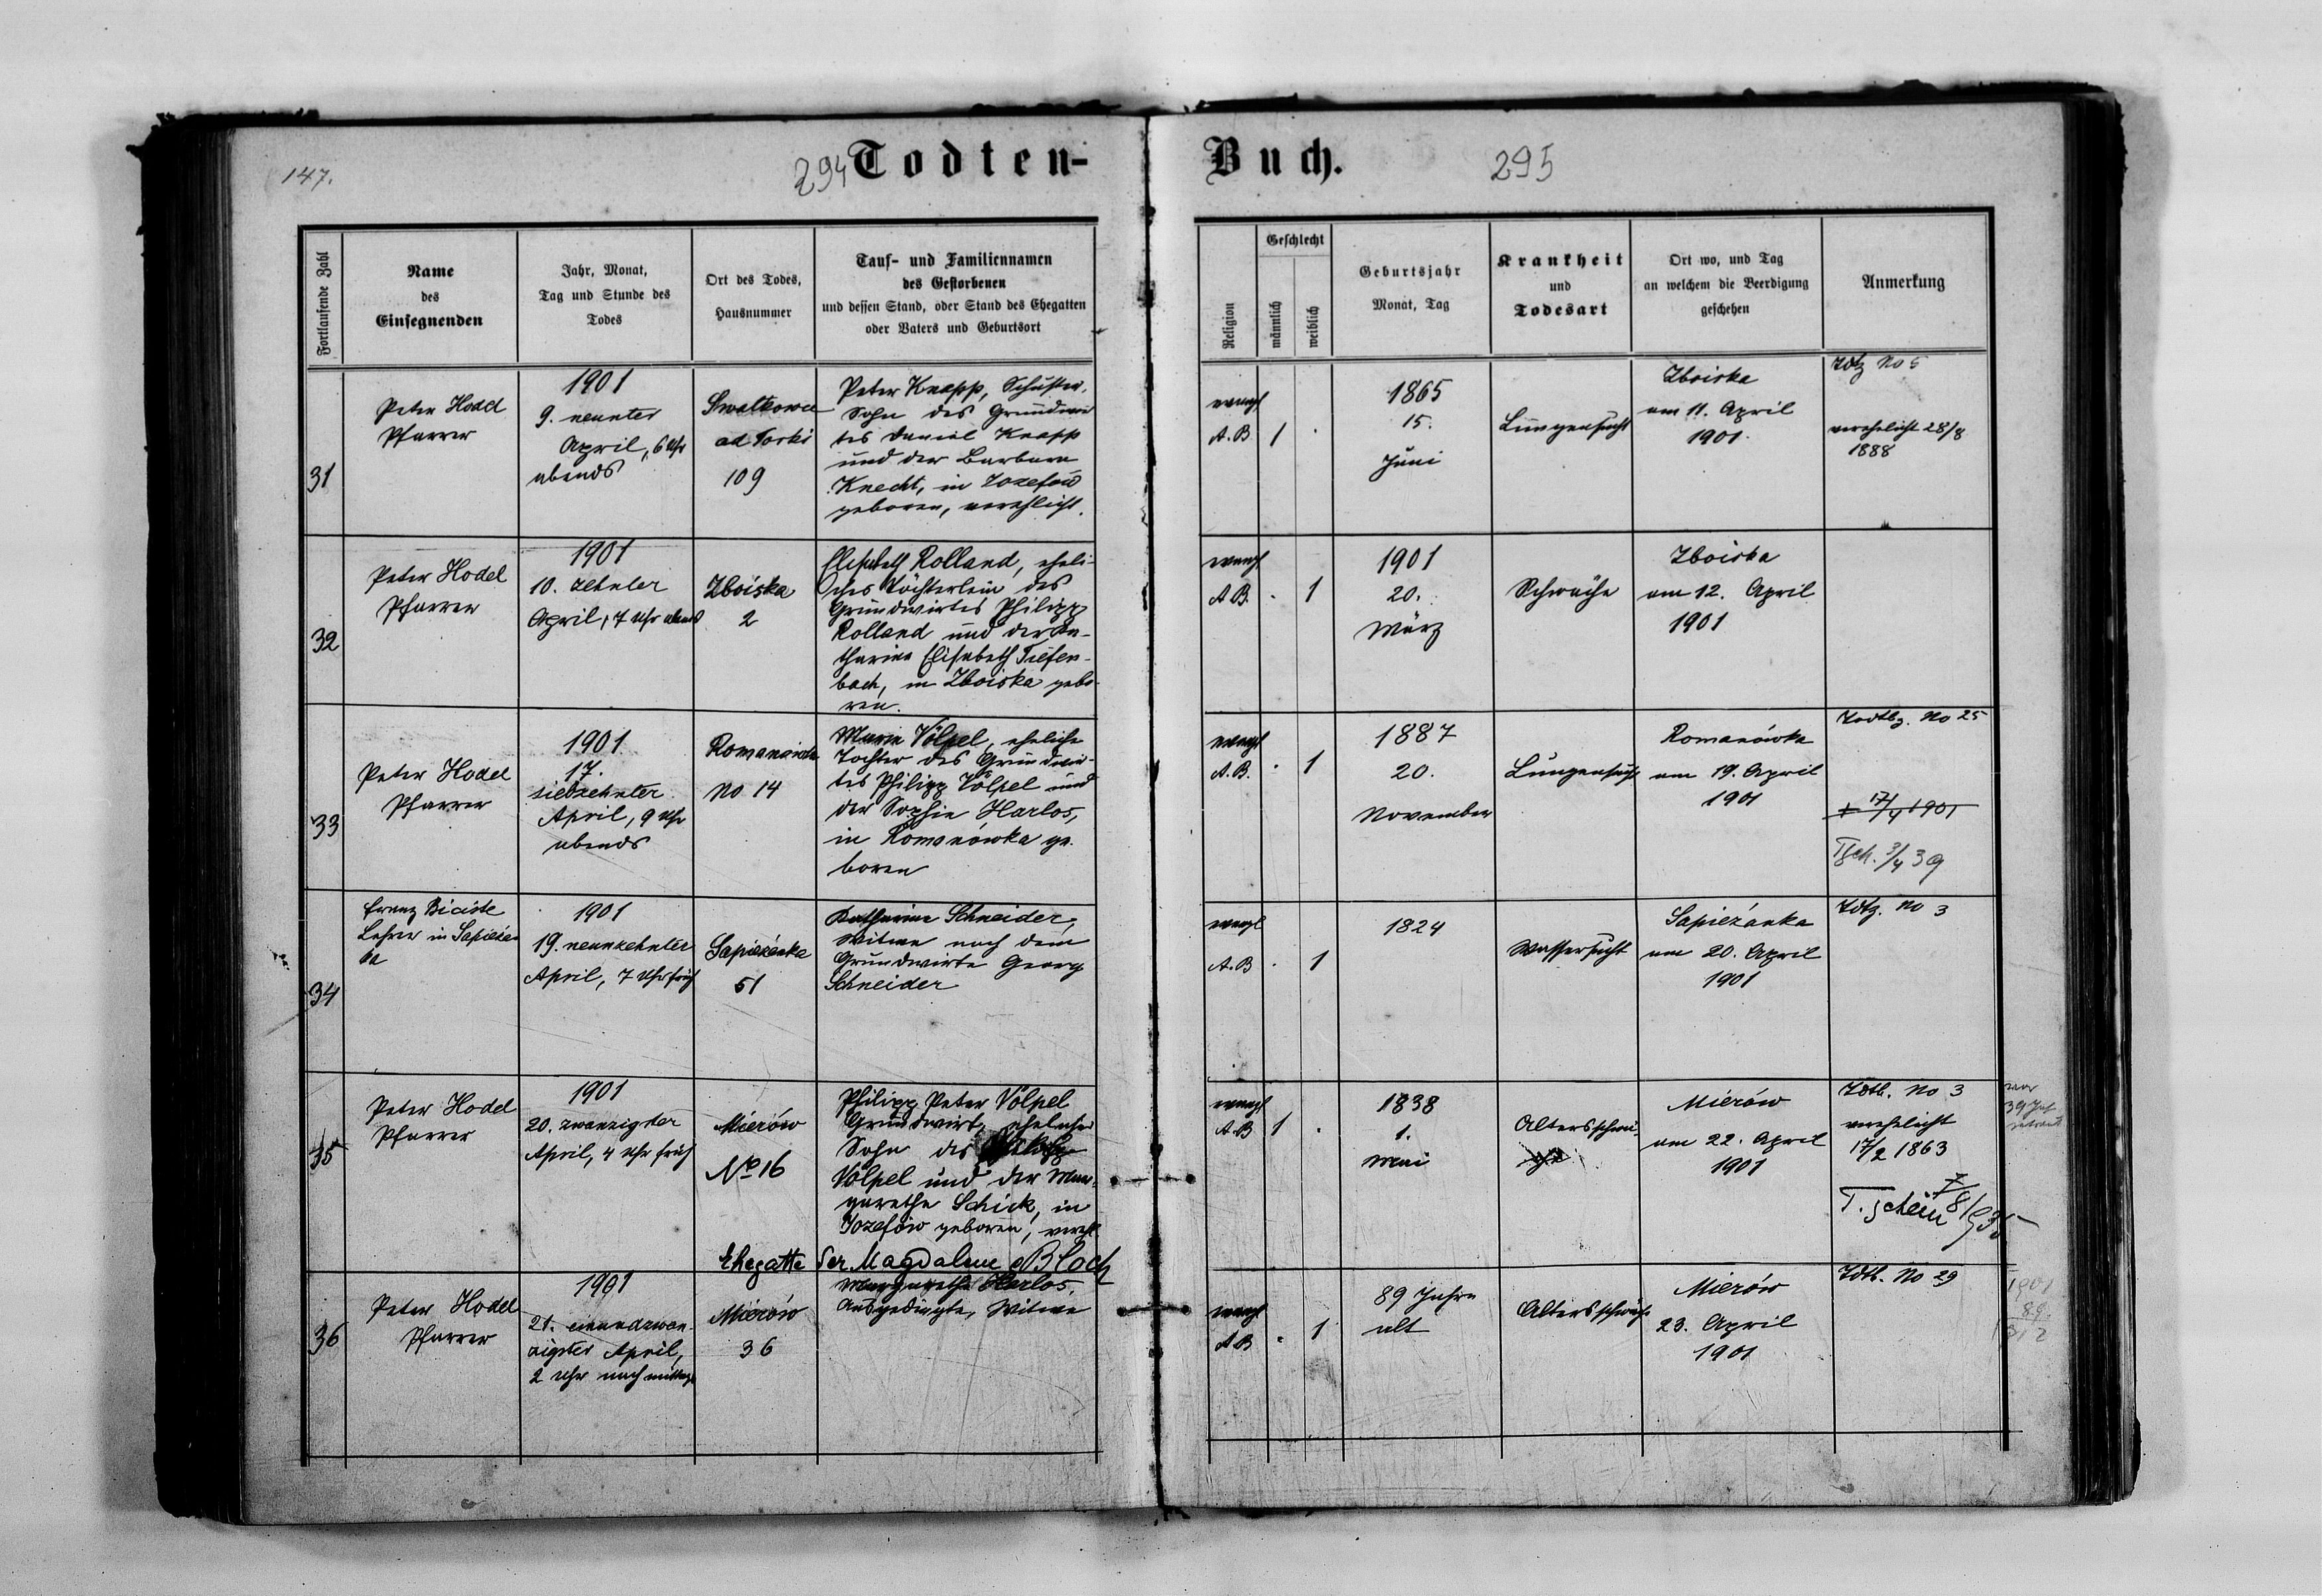 147.
294
Todten-
Buch.
295
Fortlaufende Zahl
Name
des
Einsegnenden
Jahr, Monat,
Tag und Stunde des
Todes
Ort des Todes,
Hausnummer
Tauf- und Familiennamen
des Gestorbenen
und dessen Stand, oder Stand des Ehegatten
oder Vaters und Geburtsort
Religion
Geschlecht
männlich
weiblich
Geburtsjahr
Monat, Tag
Krankheit
und
Todesart
Ort wo, und Tag
an welchem die Beerdigung
geschehen
Anmerkung
31
Peter Hodel
Pfarrer
1901
9. neunter
April, 6 Uhr
abends
ad Torki
109
Peter Knapp, Schuster,
Sohn des Grundwir
tes Daniel Knapp
und der Barbara
Knecht, in Jozefów
geboren, verehlicht.
evangl
A.B.
1
.
1865
15.
Juni
Lungensucht
Zboiska
am 11. April
1901.
Tdtz No 5
verehelicht 28/8
1888
32
Peter Hodel
Pfarrer
1901
10. zehnter
April, 7 Uhr abends
Zboiska
2
Elisabeth Rolland, eheli-
ches Töchterlein des
Grundwirtes Philipp
Rolland und der Ka-
tharina Elisabeth Tiefen-
bach, in Zboiska gebo-
ren.
evangl
A.B.
.
1
1901
20.
März
Schwäche
Zboiska
am 12. April
1901
33
Peter Hodel
Pfarrer
1901
17.
siebzehnter
April, 9 Uhr
abends
Romanówka
No 14
Maria Völpel, eheliche
Tochter des Grundwir-
tes Philipp Völpel und
der Sophie Harlos,
in Romanówka ge-
boren
evangl
A.B.
.
1
1887
20.
November
Lungensucht
Romanówka
am 19. April
1901
Todtbz. No 25
+ 17/4 1901
Tsch. 3/4 39
34
Franz
Lehrer in Sapieżan
ka
1901
19. neunzehnter
April, 7 Uhr früh
Sapieżanka
51
Katharina Schneider,
Witwe nach dem
Grundwirte Georg
Schneider
evangl
A.B
.
1
1824
Wassersucht
Sapieżanka
am 20. April
1901
Tdtz. No 3
35
Peter Hodel
Pfarrer
1901
20. zwanzigster
April, 4 Uhr früh
Mierów
No 16
Philipp Peter Völpel
Grundwirt, ehelicher
Sohn des
Völpel und der Mar-
garethe Schick, in
Jozefów geboren, verehl.
Ehegatte der Magdalene Bloch
evangl
A.B
1
.
1838
1.
Mai
Altersschwä-
che
Mierów
am 22. April
1901
Tdtb. No 3
verehelicht
17/2 1863
T. schein 7/8 1935
war
39 Jah
36
Peter Hodel
Pfarrer
1901
21. einundzwan-
zigster April,
2 Uhr nachmittags
Mierów
36
Margarethe Harlos,
Ausgedingte, Witwe
evangl
A.B
.
1
89 Jahre
alt
Altersschwäche
Mierów
23. April
1901
Tdtb. No 29
1901
89.